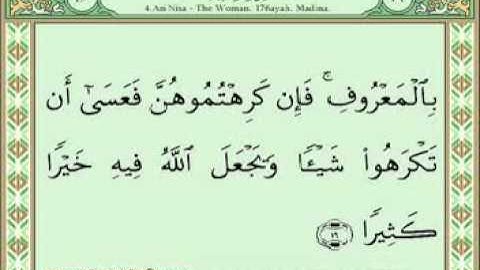 4.An Nisa - The Woman. 176ayah. Madina.
بِٱلْمَعْرُوفِ ۚ فَإِن كَرِهْتُمُوهُنَّ فَعَسَىٰٓ أَن
تَكْرَهُوا۟ شَيْـًٔا وَيَجْعَلَ ٱللَّهُ فِيهِ خَيْرًا
كَثِيرًا ١٩